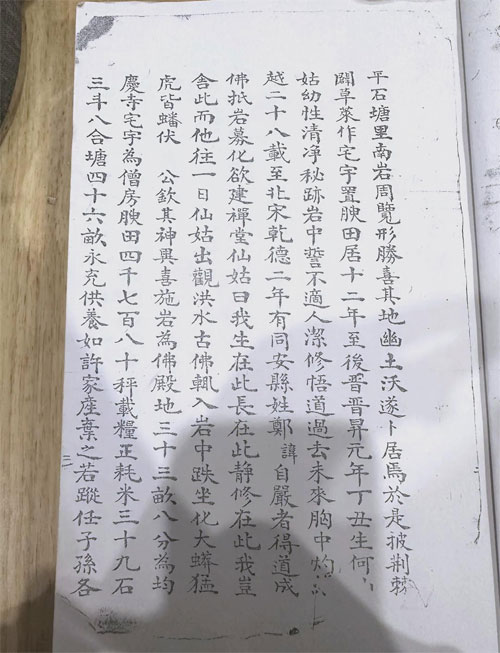 平石塘里南岩周覽形勝喜其地幽土沃遂卜居焉於是披荆棘
闢草萊作宅宇置腴田居十二年至後晉晉昇元年丁丑生何
姑幼性清净秘跡岩中誓不適人潔修悟道過去未來胸中灼
越二十八載至北宋乾德二年有同安縣姓鄭諱自嚴者得道成
佛抵岩募化欲建禪堂仙姑曰我生在此長在此静修在此我豈
舍此而他往一日仙姑出觀洪水古佛輒入岩中趺坐化大蟒猛
虎皆蟠伏 公欽其神異喜施岩為佛殿地三十三畝八分為均
慶寺宅宇為僧房腴田四千七百八十秤載糧正耗米三十九石
三斗八合塘四十六畝永充供養如許家產棄之若蹤任子孫各
三